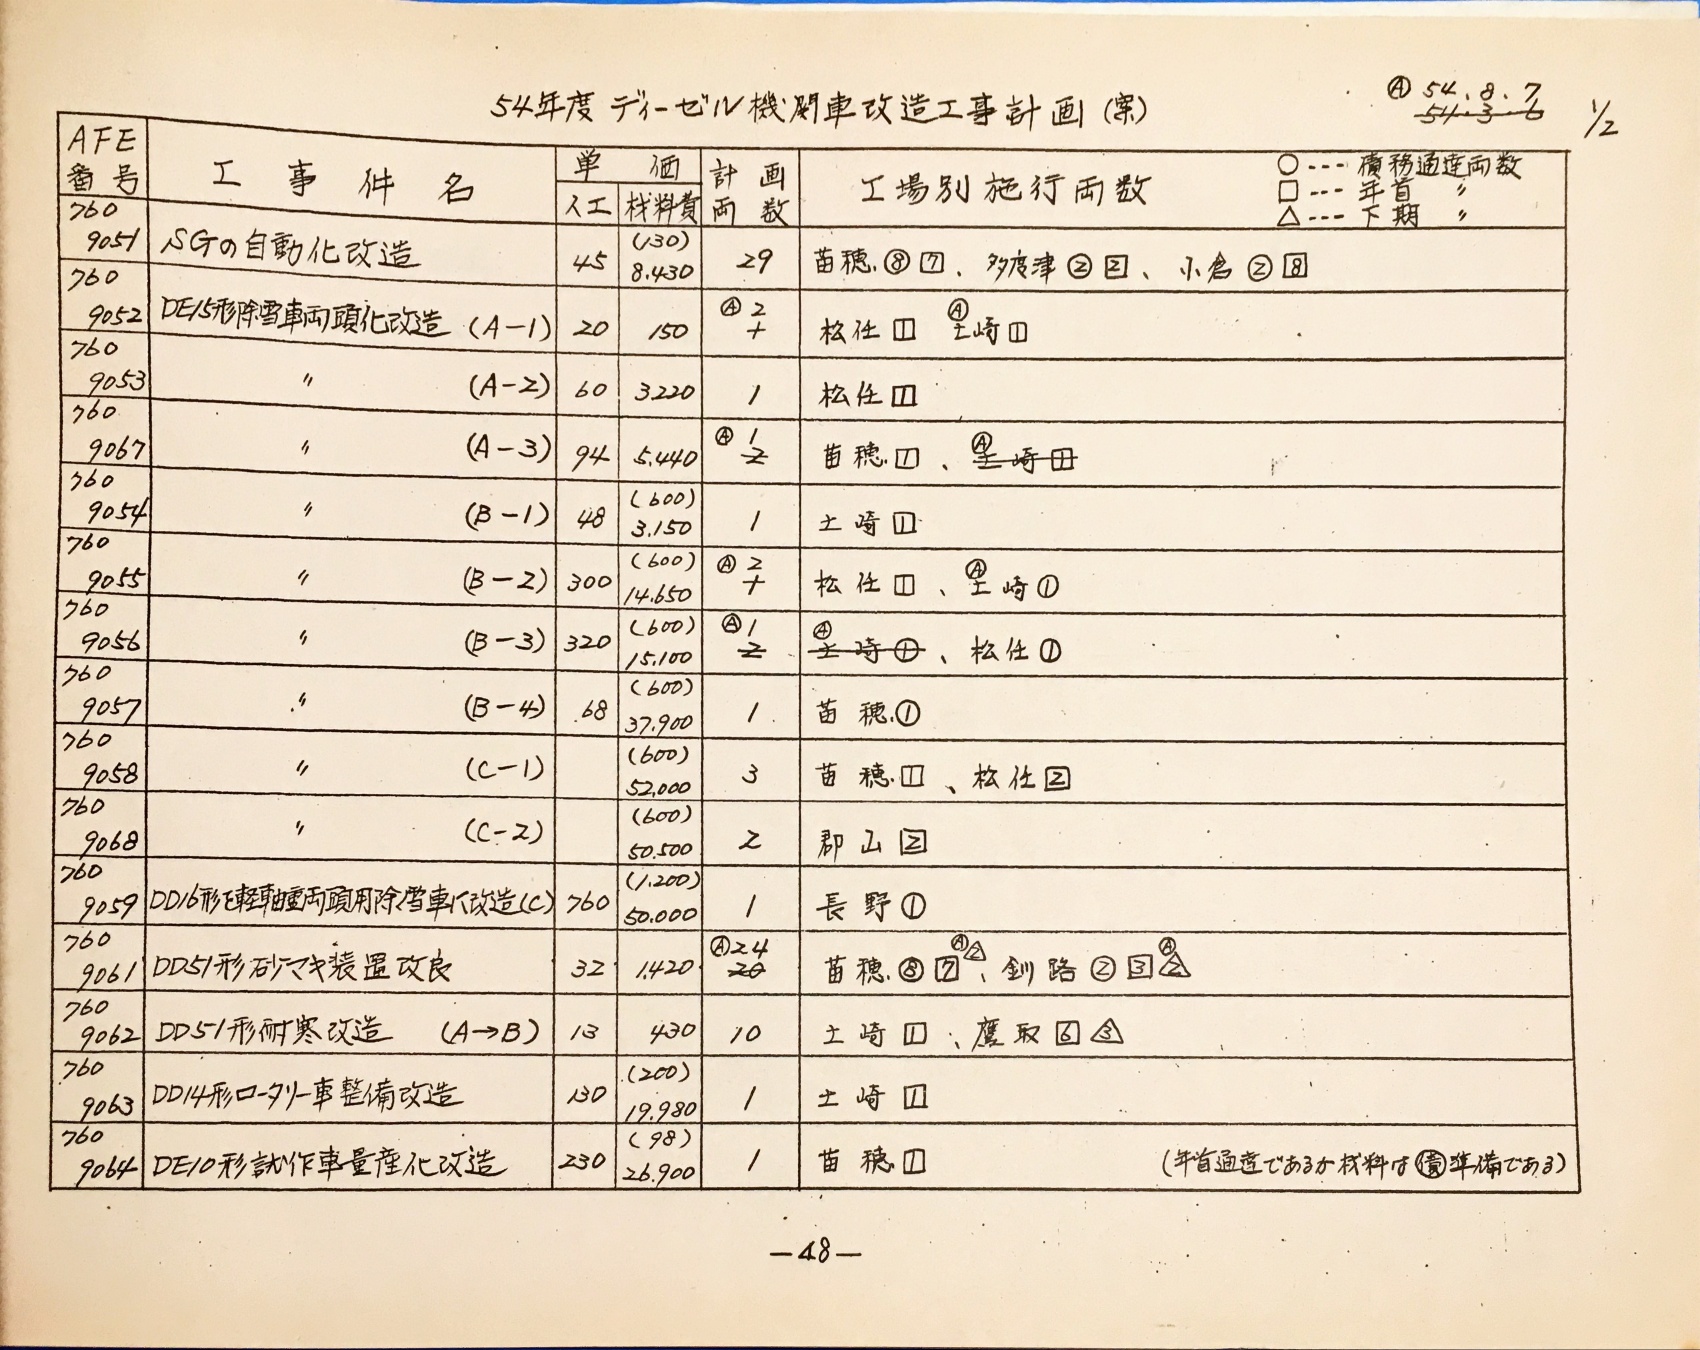 54年度 ディーゼル機関車改造工事計画(案)
Ⓐ 54.8.7
54.3.6
1/2
AFE番号 工事件名 単価 計画両数 工場別施行両数 ○--- 債務通達両数
人工 材料費 □--- 年首 〃
△--- 下期 〃
760 9051 SGの自動化改造 45 (130) 8.430 29 苗穂.⑧ 7、多度津 ② 2、小倉 ② 8
760 9052 DE15形除雪車両頭化改造 (A-1) 20 150 Ⓐ 2 1 松任 1 Ⓐ 土崎 1
760 9053 〃 (A-2) 60 3.220 1 松任 1
760 9067 〃 (A-3) 94 5.440 Ⓐ 1 2 苗穂. 1、Ⓐ 土崎 1
760 9054 〃 (B-1) 48 (600) 3.150 1 土崎 1
760 9055 〃 (B-2) 300 (600) 14.650 Ⓐ 2 1 松任 1、Ⓐ 土崎 ①
760 9056 〃 (B-3) 320 (600) 15.100 Ⓐ 1 2 Ⓐ 土崎 ①、松任 ①
760 9057 〃 (B-4) 68 (600) 37.900 1 苗穂.①
760 9058 〃 (C-1) (600) 52.000 3 苗穂. 1、松任 2
760 9068 〃 (C-2) (600) 50.500 2 郡山 2
760 9059 DD16形を軽軸重両頭用除雪車に改造(C) 760 (1.200) 50.000 1 長野 ①
760 9061 DD51形砂マキ装置改良 32 1.420 Ⓐ 24 20 苗穂.⑧ 7 Ⓐ 2、釧路 ② 3 Ⓐ 2
760 9062 DD51形耐寒改造 (A→B) 13 430 10 土崎 1、鷹取 6 3
760 9063 DD14形ロータリー車整備改造 130 (200) 19.980 1 土崎 1
760 9064 DE10形試作車量産化改造 230 (98) 26.900 1 苗穂. 1 (年首通達であるが材料は㊮準備である)
—48—